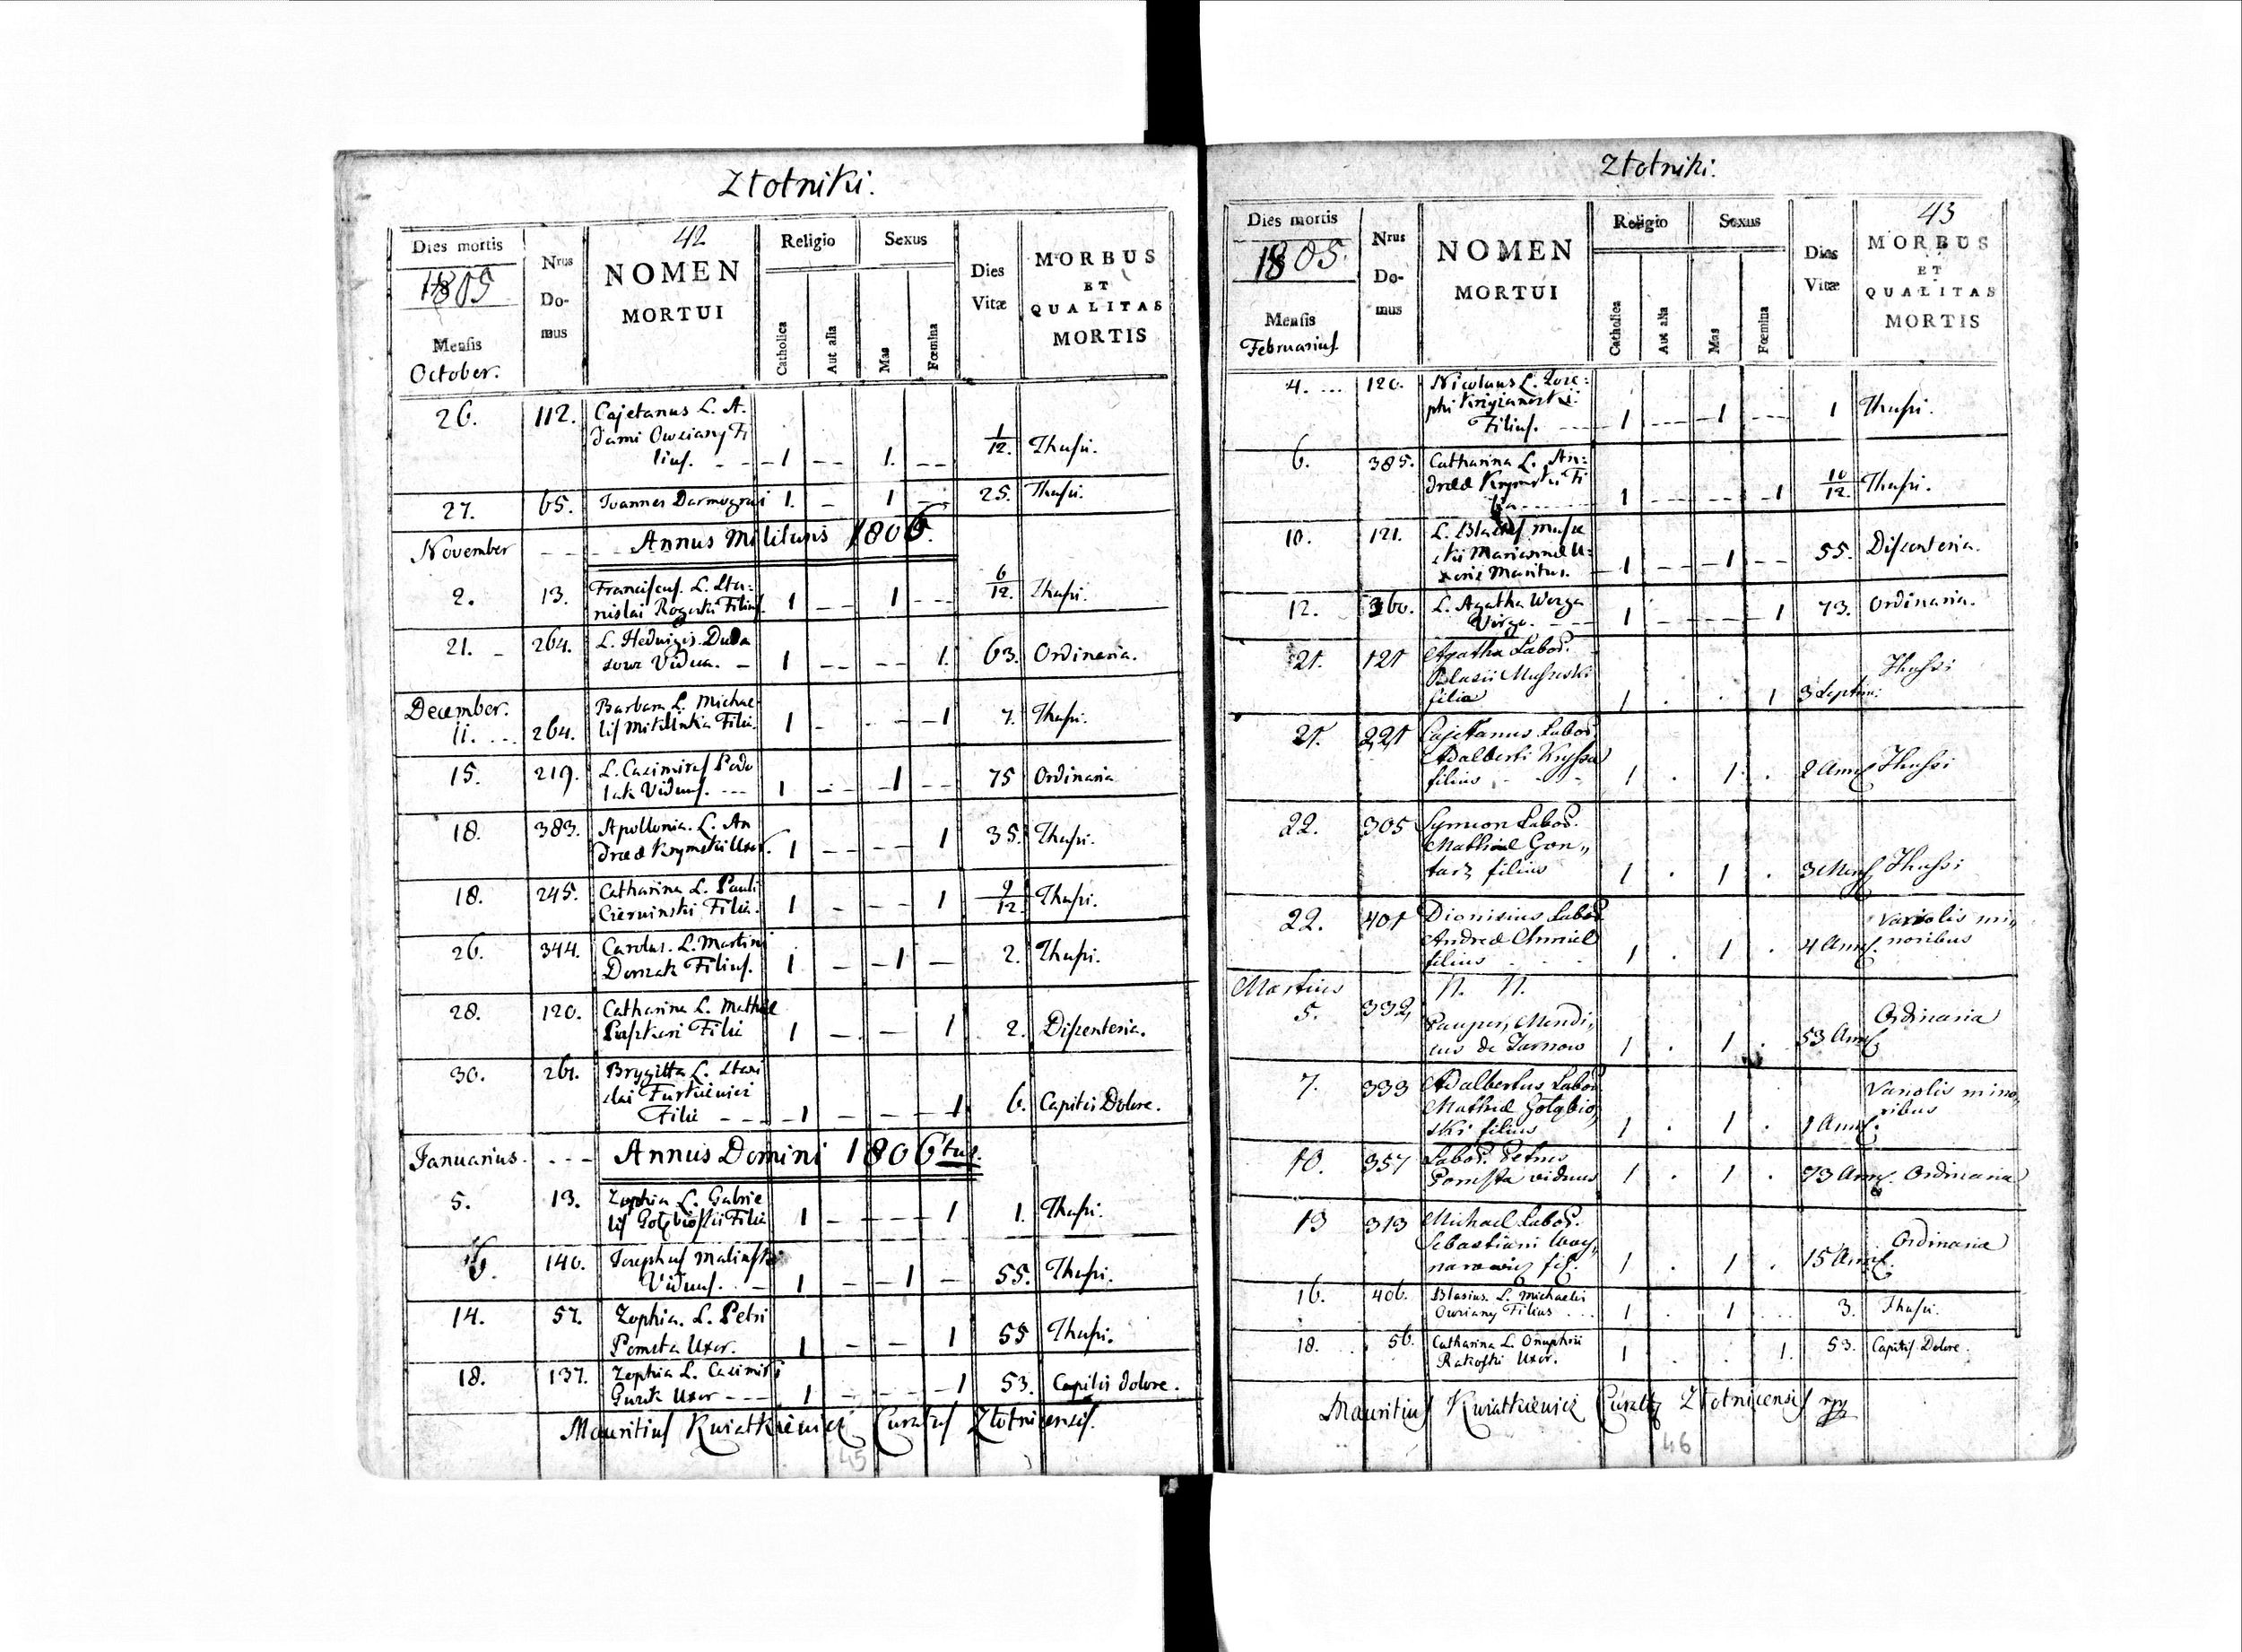 Złotniki.
Dies mortis
1805
Mensis
October.
Nrus
Do-
mus
42
NOMEN
MORTUI
Religio
Catholica
Aut alia
Sexus
Mas
Fœmina
Dies
Vitæ
MORBUS
ET
QUALITAS
MORTIS
26. 112. Cajetanus L. A.
dami Owsiany Fi
lius. - - 1 - - 1. - - 1/12. Thussi.
27. 65. Joannes 1. - 1 - 25. Thussi.
November - - - Annus Militaris 1806.
2. 13. Franciscus. L. Sta-
nislai Rogocki Filius. 1 - - 1 - - 6/12. Thussi.
21. - 264. L. Hedvigis Duda
sowa Vidua. - 1 - - - - 1. 63. Ordinaria.
December.
11. ... 264. Barbara L. Michae
lis Filia. 1 - - - - 1 7. Thussi.
15. 219. L. Casimirus Podo
lak Viduus. --- 1 - - - 1 - - 75 Ordinaria
18. 383. Apollonia. L. An
dreæ Krymski Uxor. 1 - - - - 1 35. Thussi.
18. 245. Catharina L. Pauli
Czerwinski Filia. 1 - - - 1 9/12. Thussi.
26. 344. Carolus. L. Martini
Filius. 1 - - 1 - 2. Thussi.
28. 120. Catharina L. Mathiæ
Filia 1 - - 1 2. Dissenteria.
30. 261. Brygitta L. Stani
slai Furtkiewicz
Filia - - - 1 - - - 1 6. Capitis Dolore.
Januarius. . - - - Annus Domini 1806tus.
5. 13. Zophia L. Gabrie
lis Gołębioski Filia 1 - - - - 1 1. Thussi.
6. 140. Josephus Malinski
Viduus. . - 1 - - 1 - 55. Thussi.
14. 57. Zophia. L. Petri
Pomsta Uxor. 1 - - 1 55 Thussi.
18. 137. Zophia L. Casimiri
Guzik Uxor - - - 1 - - - - 1 53. Capitis dolore.
Mauritius Kwiatkiewicz Curatus Złotnicensis.
45
Złotniki.
Dies mortis
1805.
Mensis
Februarius.
Nrus
Do-
mus
NOMEN
MORTUI
Religio
Catholica
Aut alia
Sexus
Mas
Fœmina
Dies
Vitæ
43
MORBUS
ET
QUALITAS
MORTIS
4. ... 120. Nicolaus L. Jose:
phi Krzyzanoski
Filius. --- 1 --- 1 --- 1 Thussi.
6. 385. Catharina L. An:
dreæ Krymski Fi
lia ----- 1 - - - - - 1 10/12. Thussi.
10. 121. L. Blasius
Mariannæ U:
xoris Maritus. 1 - - - 1 - - 55. Dissenteria.
12. 360. L. Agatha Worga
Virgo. - - - 1 - - - - - 1 73. Ordinaria.
21. 121 Agatha Labor.
Blasii
filia 1 . . 1 3 Septim: Thussi
21. 221 Cajetanus Labor.
Adalberti Kryssa
filius - - - 1 . 1 . 2 Ann. Thussi
22. 305 Symeon Labor.
Mathiæ Gon„
tarz filius 1 . 1 . 3 Mens. Thussi
22. 401 Dionisius Labor.
Andreæ Chmiel
filius . . . 1 . 1 . 4 Ann. Variolis mi„
noribus
Martius
5. 332, N. N.
Pauper, Mendi„
cus de Tarnow 1 . 1 . 53 Ann. Ordinaria
7. 333 Adalbertus Labor.
Mathiæ Gołębio„
ski filius 1 . 1 . 1 Ann. Variolis mino„
ribus
10. 357 Labor. Petrus
Pomsta viduus 1 . 1 . 73 Ann. Ordinaria
13 313 Michael Labor.
Sebastiani Woy„
narowicz fil. 1 . 1 . 15 Ann. Ordinaria
16. 406. Blasius. L. Michaelis
Owsiany Filius . . . 1 . 1 ... 3. Thussi.
18. . . 56. Catharina L. Onuphrii
Rakoski Uxor. 1 . . 1. 53. Capitis Dolore.
Mauritius Kwiatkiewicz Curatus Złotnicensis mp
46